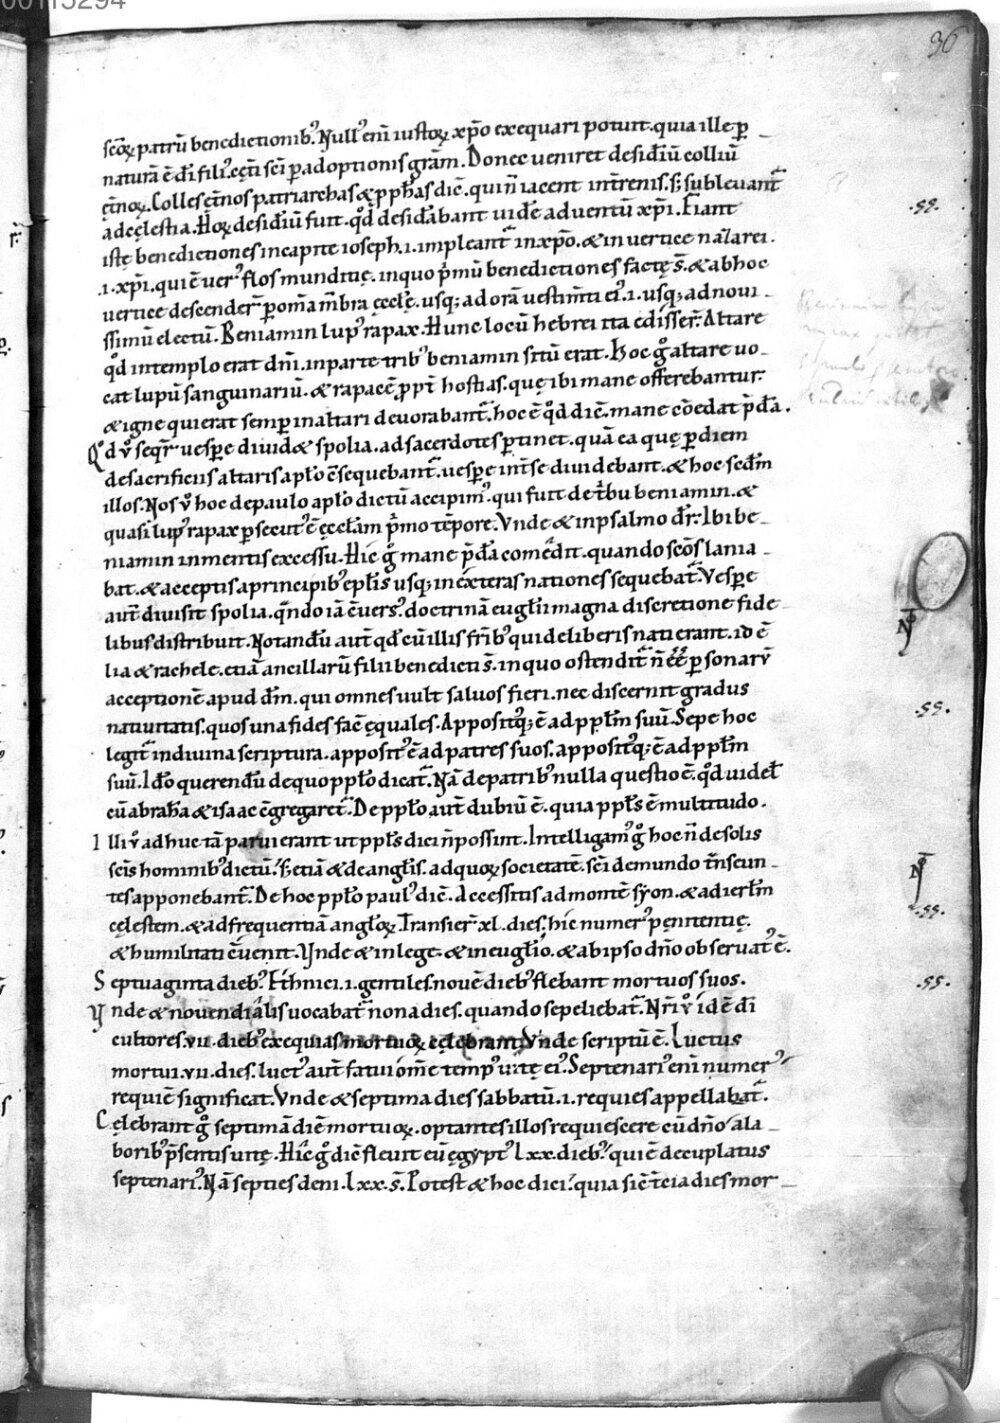 00115294
36
scōꝝ patrū benedictionibꝰ. Nullꝰ enī iustoꝝ xp̄o exequari potuit. quia ille ꝑ
naturā ē dī filiꝰ. cętī scī ꝑ adoptionis grām. Donec ueniret desidīū colliū
ęt̄noꝝ. Colles ęt̄nos patriarchas & ꝓph̄as dic̄. qui n̄ iacent int̄renis. s; subleuant̄
ad cęlestia. Hoꝝ desidīū fuit. qd̄ desidābant uidē aduentū xp̄i. Fiant
istę benedictiones in capite ioseph. .i. impleant̄ in xp̄o. & in uertice nazarei.
.i. xp̄i. qui ē uerꝰ flos munditię. in quo p̄mū benedictiones factę s̄. & ab hoc
uertice descender̄ ꝑ om̄a m̄bra ęccłę. usq; ad orā uestim̄ti eiꝰ. .i. usq; ad noui
ssimū electū. Beniamin lupꝰ rapax. Hunc locū hebrei ita edisser̄. Altare
qd̄ in templo erat dn̄i. in parte tribꝰ beniamin sitū erat. Hoc g̊ altare uo
cat lupū sanguinariū. & rapacē ꝓpt̄ hostias. quę ibi mane offerebantur.
& igne qui erat semꝑ in altari deuorabant̄. hoc ē qd̄ dic̄. mane cōedat p̄dā.
Qd̄ v̊ seqr̄ uesꝑe diuid& spolia. ad sacerdotes ꝑtinet. quā ea quę ꝑ diem
de sacrificiis altaris apł'o c̄sequebant̄. uesꝑe int̄ se diuidebant. & hoc scd̄m
illos. Nos v̊ hoc de paulo apł'o dictū accipimꝰ. qui fuit de t̄bu beniamin. &
quasi lupꝰ rapax ꝑsecutꝰ ē ęccłam p̄mo tēpore. Vnde & in psalmo dr̄. Ibi be
niamin in mentis excessu. Hic g̊ mane p̄dā comedit. quando scōs lania
bat. & acceptis a principibꝰ epłis usq; in exteras nationes sequebat̄. Vesꝑe
aut̄ diuisit spolia. qn̄do iā c̄uersꝰ. doctrinā eugłii magna discretione fide
libus distribuit. Notandū aut̄ qd̄ cū illis fr̄ibꝰ qui de liberis nati erant. id ē
lia & rachele. etiā ancillarū filii benedicti s̄. in quo ostendit̄ n̄ ēē ꝑsonarū
acceptionē apud dm̄. qui omnes uult saluos fieri. nec discernit gradus
natiuitatis. quos una fides fac̄ ęquales. Appositꝰq; ē ad ppłm suū. Sepe hoc
legit̄ in diuina scriptura. appositꝰ ē ad patres suos. appositꝰq; ē ad ppłm
suū. Idō querendū de quo ppło dicat̄. Nā de patribꝰ nulla questio ē. qd̄ uidel
cū abrahā & isaac c̄gregaret̄. De ppło aut̄ dubiū ē. quia ppłs ē multitudo.
Illi v̊ adhuc tā parui erant ut ppłs dici n̄ possint. Intelligamꝰ g̊ hoc n̄ de solis
scīs hominibꝰ dictū. s; etiā & de angłis. ad quoꝝ societatē. scī de mundo t̄nseun
tes apponebant̄. De hoc ppło paulꝰ dic̄. Accessistis ad montē syon. & ad ierłm
cęlestem. & ad frequentiā angłoꝝ. Transier̄ xl. dies. hic numerꝰ penitentię.
& humilitati c̄uenit. Vnde & in lege. & in eugłio. & ab ipso dn̄o obseruatꝰ ē.
Septuaginta diebꝰ. Ethnici. .i. gentiles. nouē diebꝰ flebant mortuos suos.
Vnde & nouendialis uocabat̄ nona dies. quando sepeliebat̄. Nr̄i v̊ id ē dī
cultores. vii. diebꝰ exequias mortuoꝝ celebrant. Vnde scriptū ē. Luctus
mortui. vii. dies. luctꝰ aut̄ fatui om̄e tempꝰ uitę eiꝰ. Septenariꝰ enī numerꝰ
requiē significat. Vnde & septima dies sabbatū. .i. requies appellabat̄.
Celebrant g̊ septimā diē mortuoꝝ. optantes illos requiescere cū dn̄o a la
boribꝰ p̄sentis uitę. Hic g̊ dic̄ fleuit eū ęgyptꝰ lxx. diebꝰ. qui ē decuplatus
septenariꝰ. Nā septies deni. lxx. s̄. Potest & hoc dici. quia sic̄ t̄cia dies mor